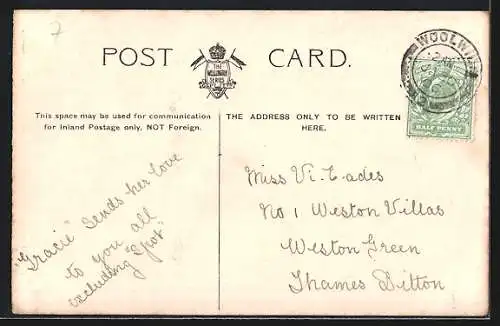 7
POST CARD.
THE
WELLINGTON
SERIES
WOOLWI
HALF PENNY
This space may be used for communication
for Inland Postage only, NOT Foreign.
THE ADDRESS ONLY TO BE WRITTEN
HERE.
"Gracie" sends her love
to you all
excluding "Spot"
Miss Vi. Eades
No 1 Weston Villas
Weston Green
Thames Ditton